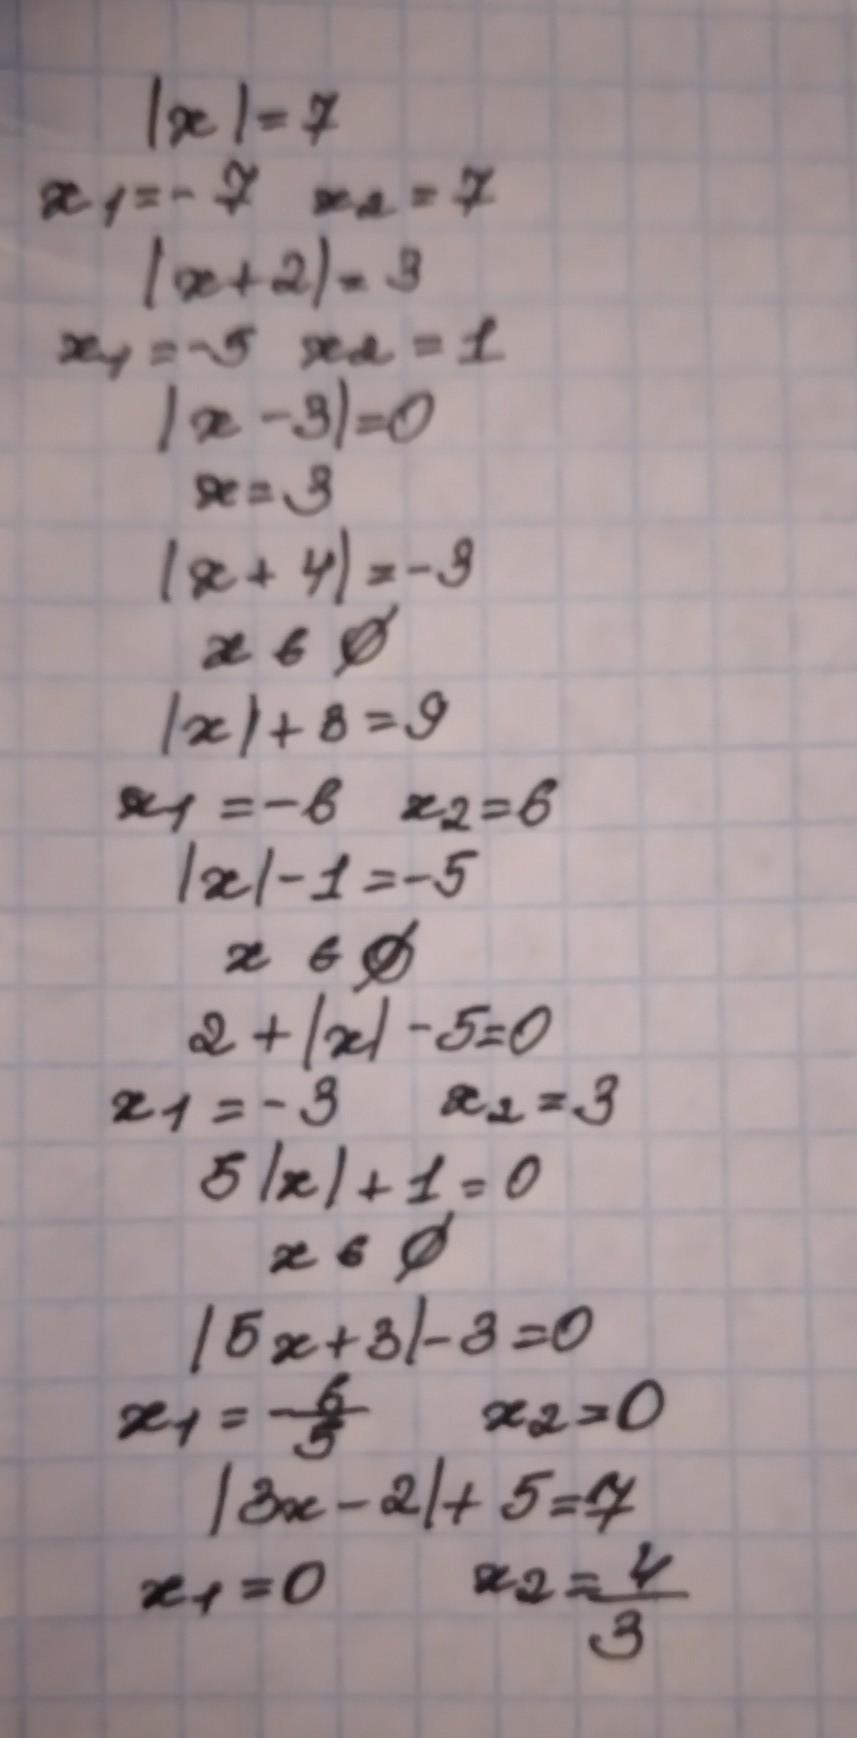 |x|=7
x₁=-7 x₂=7
|x+2|=3
x₁=-5 x₂=1
|x-3|=0
x=3
|x+4|=-3
x ϵ ∅
|x|+3=9
x₁=-6 x₂=6
|x|-1=-5
x ϵ ∅
2+|x|-5=0
x₁=-3 x₂=3
5|x|+1=0
x ϵ ∅
|5x+3|-3=0
x₁=-6/5 x₂=0
|3x-2|+5=7
x₁=0 x₂=4/3